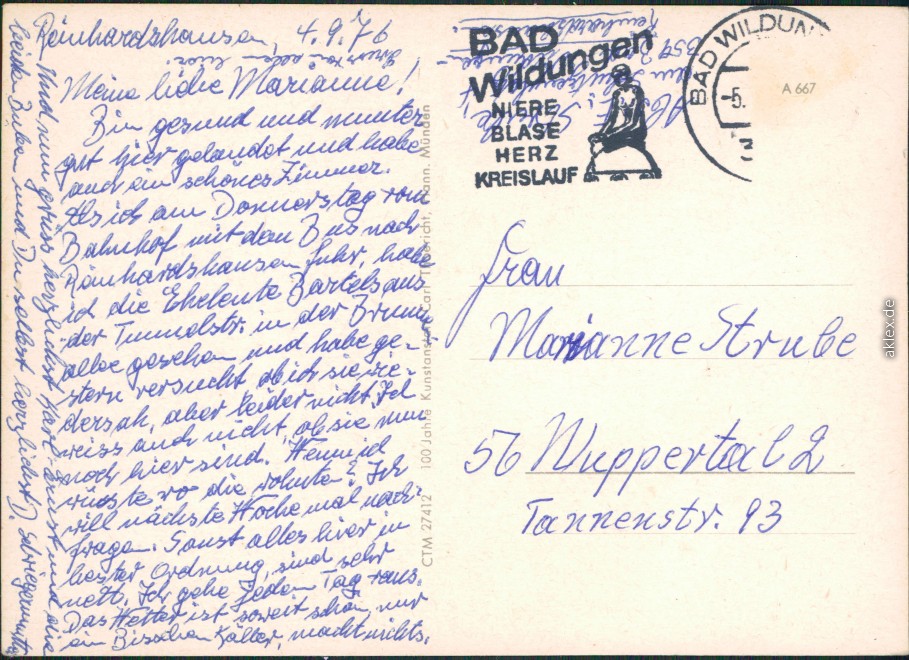 Reinhardshausen, 4.9.76
Meine liebe Marianne!
Bin gesund und munter
gut hier gelandet und habe
auch ein schönes Zimmer.
Als ich am Donnerstag vom
Bahnhof mit dem Bus nach
Reinhardshausen fuhr, habe
ich die Eheleute Bartels aus
der Tunnelstr. in der Brunn-
allee gesehen und habe ge-
stern versucht ob ich sie wie-
dersah, aber leider nicht. Ich
weiss auch nicht, ob sie nun
noch hier sind. Wenn ich
wüsste wo die wohnten? Ich
will nächste Woche mal nach-
fragen. Sonst alles hier in
bester Ordnung, sind sehr
nett. Ich gehe jeden Tag raus.
Das Wetter ist soweit schön, nur
ein Bisschen Kälter, macht nichts.
Und nun grüss herzlichst Karl Ernst und die
beiden Buben und Du selbst herzlichst D. Schwiegermutter
CTM 27412 100 Jahre Kunstanstalt Carl Thoericht, Hann. Münden
BAD
Wildungen
NIERE
BLASE
HERZ
KREISLAUF
BAD WILDUN
-5.
A 667
Reinhardshausen
Frau
Marianne Strube
56 Wuppertal 2
Tannenstr. 93
aklex.de